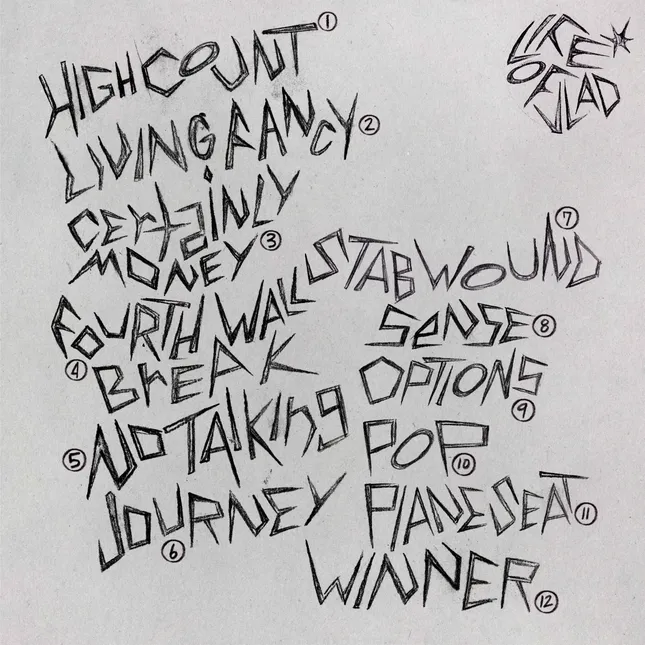 HIGH COUNT ①
LIVING FANCY ②
CertaiNLY
MONEY ③
FOURTH WALL
④ BrEAK
⑤ NO TAlKing
JOURNEY ⑥
STAB WOUND ⑦
SENSE ⑧
OPTIONS ⑨
POP ⑩
PlANE SEAT ⑪
WINNER ⑫
OF